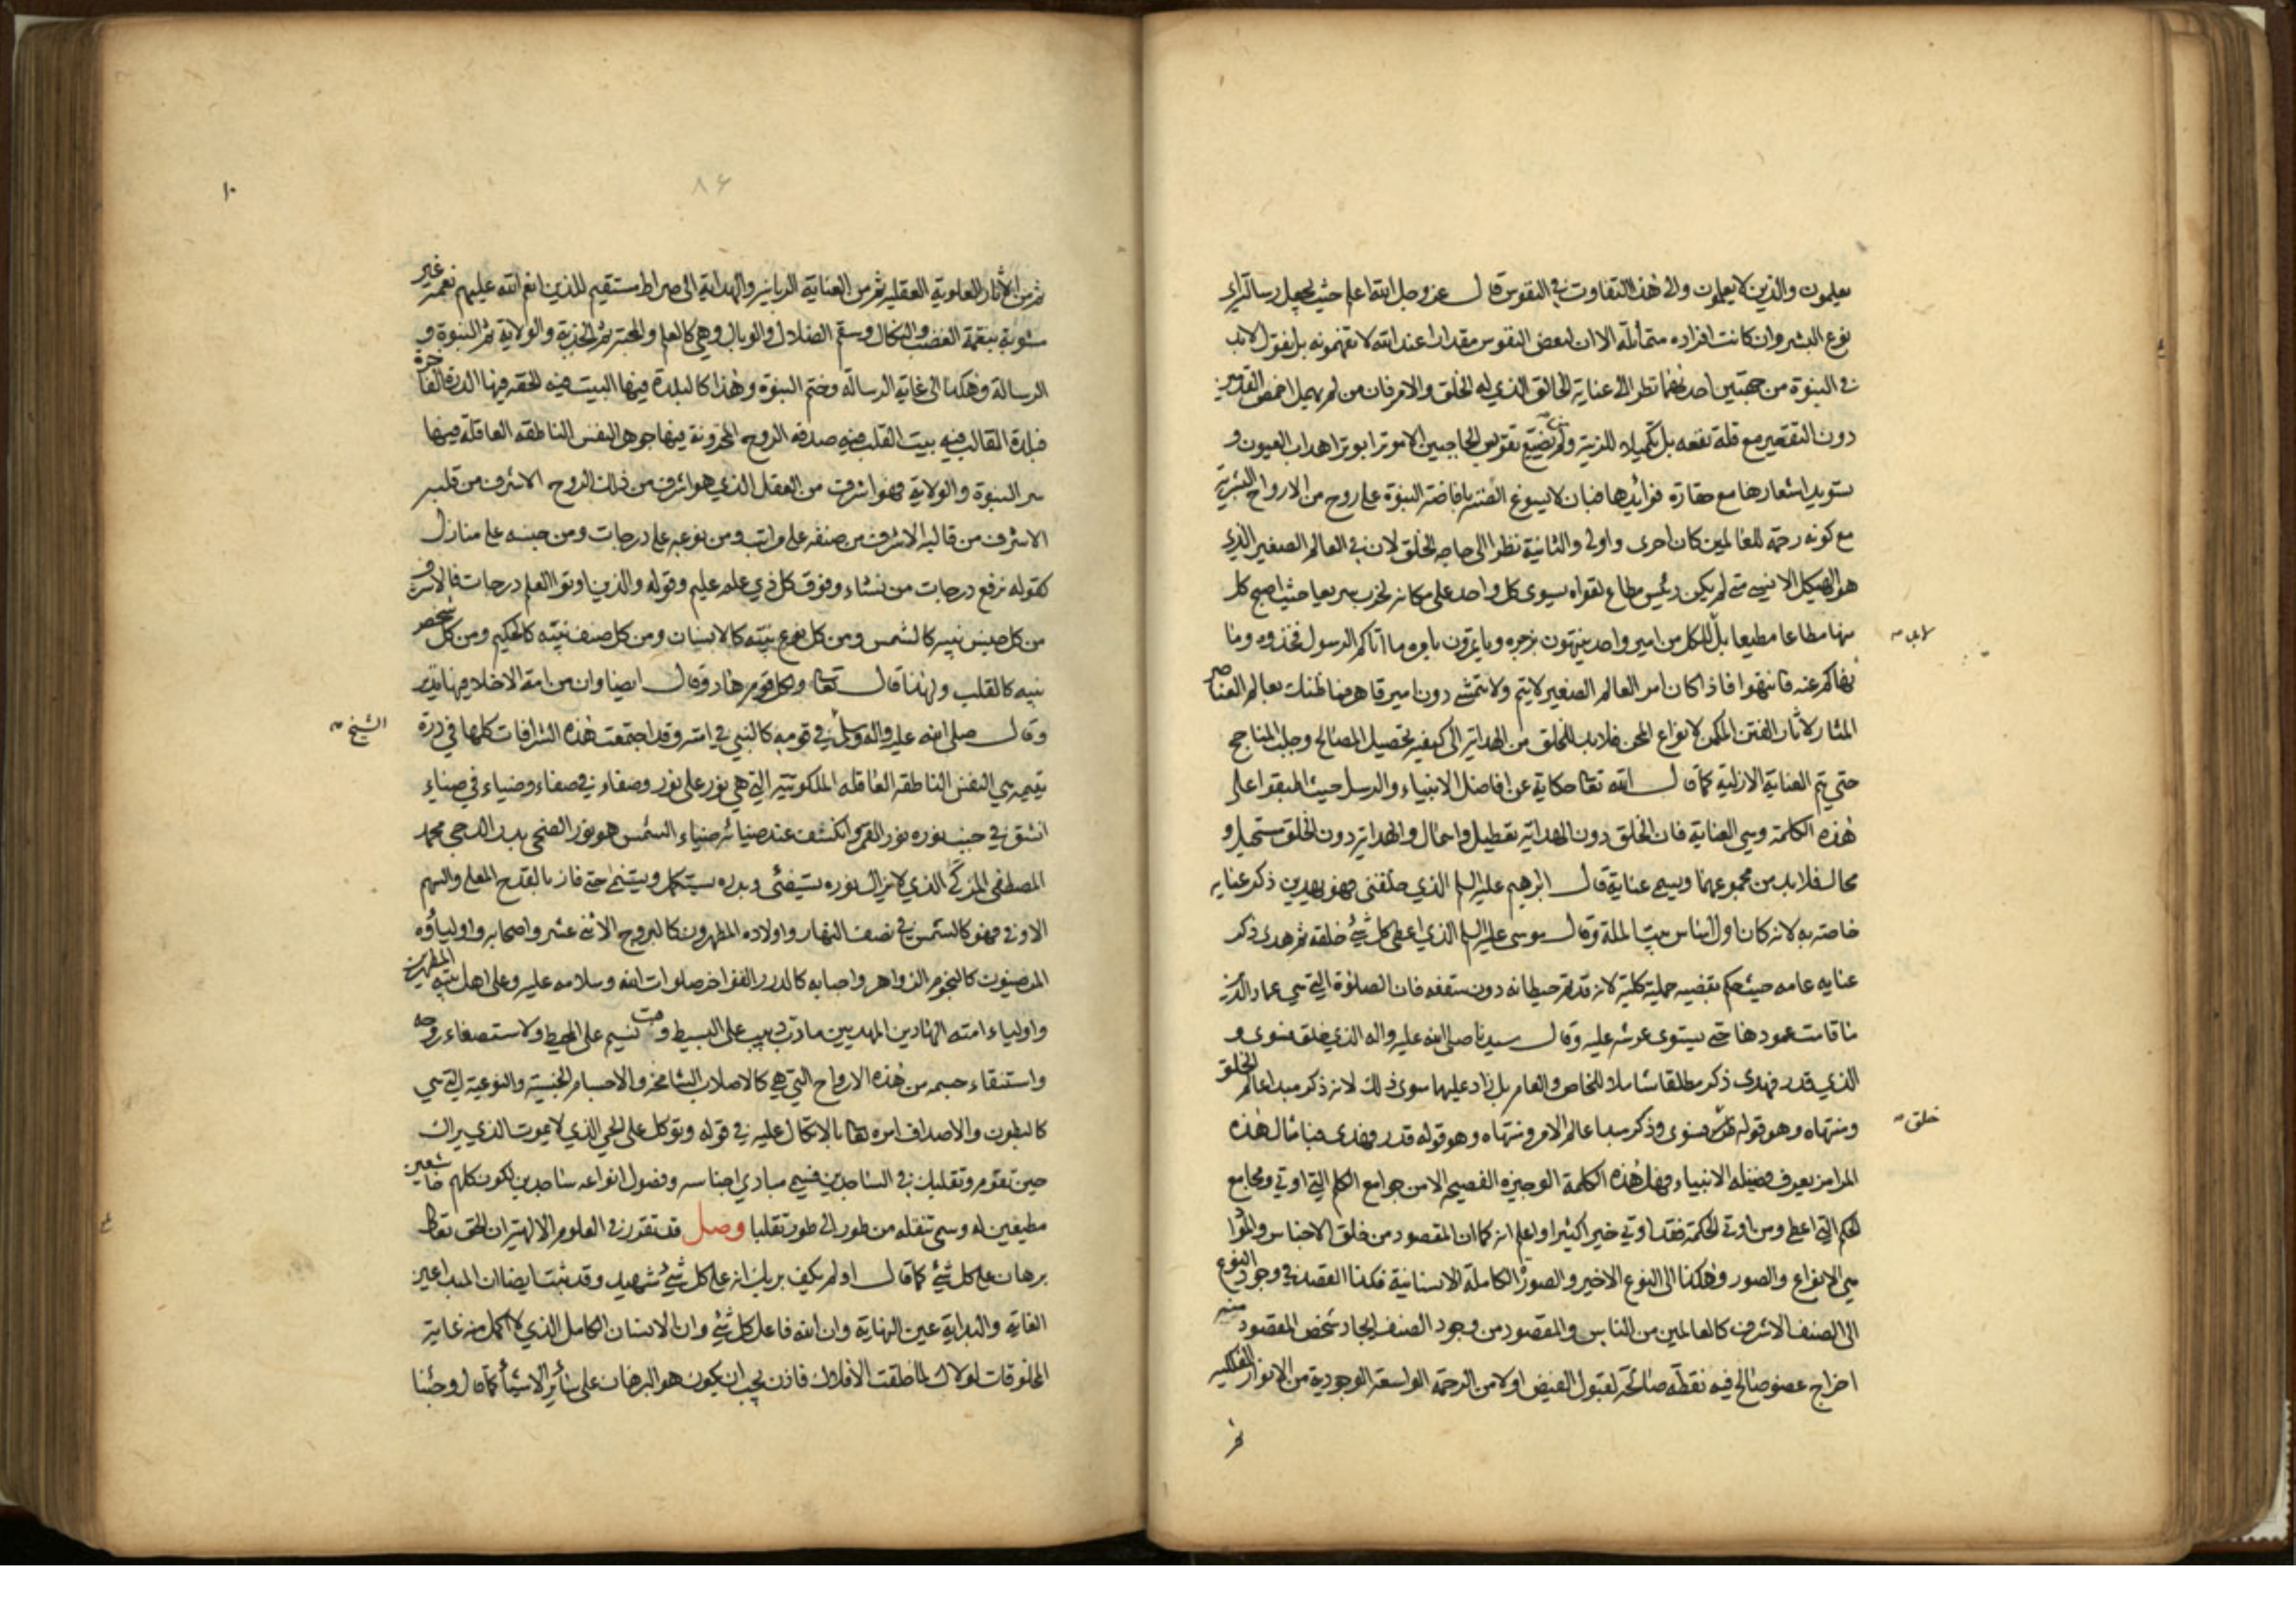 يعلمون والذين لا يعلمون والى هذا التفاوت في النفوس قال عز وجل الله اعلم حيث يجعل رسالته
نوع البشر وان كانت افراده متماثلة الا ان لبعض النفوس مقدارا عند الله لا تفهمونه بل نقول لابد
في النبوة من جهتين احدهما نظرا الى عناية الخالق الذي له الخلق والامر فان من لم يهمل اخمص القدمين
دون التقعير مع قلة نفعه بل تكميلا للزينة ولم يضيع تقويس الحاجبين اهداب العيون و
تسويد اشعارها مع حقارة فوائدها فبان لا يسوغ الضنة بافاضة النبوة على روح من الارواح البشرية
مع كونه رحمة للعالمين كان احرى واولى والثانية نظرا الى حاجة الخلق لان في العالم الصغير الذي
هو الهيكل الانسي متى لم يكن رئيس مطاع لقواه يسوى كل واحد على مكانه لخرب سريعا حيث اصبح كل
منها مطاعا مطيعا بل للكل من امير واحد ينتهون بزجره وياتمرون بامره ما اتاكم الرسول فخذوه وما
لابد
نهاكم عنه فانتهوا فاذا كان امر العالم الصغير لا يتم ولا يتمشى دون امير قاهر فما ظنك بعالم العناصر
المثار لاثار الفتن المكمن لانواع المحن فلابد للخلق من الهداية الى كيفية تحصيل المصالح وجلب المناجح
حتى يتم العناية الازلية كما قال الله تعالى حكاية عن افاضل الانبياء والرسل حيث اطبقوا على
هذه الكلمة وهي العناية فان الخلق دون الهداية تعطيل واهمال والهداية دون الخلق مستحيل و
محال فلابد من مجموعهما ويسمى عناية قال ابرهيم عليه السلم الذي خلقني فهو يهدين ذكر عناية
خاصة به لانه كان اول الناس بيت الملة وقال موسى عليه السلم الذي اعطى كل شيء خلقه ثم هدى ذكر
عناية عامة حيث حكم بقضية جملية كلية لانه قد تم حيطانه دون سقفه فان الصلوة التي هي عماد الدين
ما قامت عمودها حتى يستوى عرشه عليه وقال سيدنا صلى الله عليه واله الذي خلق فسوى و
الذي قدر فهدى ذكر مطلقا شاملا للخاص والعام بل زاد عليهما سوى ذلك لانه ذكر مبدا عالم الخلق
ومنتهاه وهو قوله فسوى وذكر مبدا عالم الامر ومنتهاه وهو قوله قدر فهدى فبامثال هذه
خلق
المرامز يعرف فضيلة الانبياء وهل هذه الكلمة الوجيزة الفصيحة الا من جوامع الكلم التي اوتي ومجامع
الحكم التي اعطي ومن اوتي الحكمة فقد اوتي خيرا كثيرا واعلم انه كما ان المقصود من خلق الاجناس والمواد
هي الانواع والصور وهكذا الى النوع الاخير والصورة الكاملة الانسانية فكذا القصد في وجود النوع
الى الصنف الاشرف كالعالمين من الناس والمقصود من وجود الصنف ايجاد شخص المقصود منه
اخراج عضو صالح فيه نقطة صالحة لقبول الفيض اولا من الرحمة الواسعة الوجودية من الانوار الفلكية
ثم
٨٦
١٠
ثم من الاثار العلوية العقلية ثم من العناية الربانية والهداية الى صراط مستقيم للذين انعم الله عليهم نعمة غير
مشوبة بنقمة الغضب والنكال وسقم الضلال والوبال وهي كالعلم والمحبة ثم الجذبة والولاية ثم النبوة و
الرسالة وهكذا الى غاية الرسالة وختم النبوة وهذا كالبلدة فيها البيت فيه الحقة فيها الدرة الفاخرة
فبلدة القالب فيه بيت القلب فيه صدفة الروح المخزونة فيها جوهر النفس الناطقة العاقلة فيها
سر النبوة والولاية فهو اشرف من العقل الذي هو اشرف من ذلك الروح الاشرف من قلبه
الاشرف من قالبه الاشرف من صنفه على مراتب ومن نوعه على درجات ومن جنسه على منازل
كقوله نرفع درجات من نشاء وفوق كل ذي علم عليم وقوله والذين اوتوا العلم درجات فالاشرف
من كل جنس نبيه كالشمس ومن كل نوع نبيه كالانسان ومن كل صنف نبيه كالحكيم ومن كل شخص
نبيه كالقلب ولهذا قال تعالى ولكل قوم هاد وقال ايضا وان من امة الا خلا فيها نذير
وقال صلى الله عليه واله وسلم في قومه كالنبي في امته وقد اجتمعت هذه الشرافات كلها في درة
الشيخ
يتيمة هي النفس الناطقة العاقلة الملكوتية التي هي نور على نور وصفاء في صفاء وضياء في ضياء
انشق في جنب نوره نور القمر وانكشف عند ضيائه ضياء الشمس هو نور الضحى بدر الدجى محمد
المصطفى المزكى الذي لا يزال نوره يستضئ وبدره يستكمل حتى فاز بالقدح المعلى والسهم
الاوفى فهو كالشمس في نصف النهار واولاده المطهرون كالبروج الاثنى عشر واصحابه واولياؤه
المرضيون كالنجوم الزواهر واحبابه كالدرر الفواخر صلوات الله وسلامه عليه وعلى اهل بيته المطهرين
واولياء امته الهادين المهديين ما دب دبيب على البسيط وهبت نسيم على المحيط ولاستصفاء روحه
واستنقاء جسمه من هذه الارواح التي هي كالاصلاب الشامخة والاجسام الجنسية والنوعية التي هي
كالبطون والاصداف امره تعالى بالاتكال عليه في قوله وتوكل على الحي الذي لا يموت الذي يراك
حين تقوم وتقلبك في الساجدين فسمى مبادي اجناسه وفصول انواعه ساجدين لكون كلهم خاشعين
مطيعين له وسمى تنقله من طور الى طور تقلبا وصل قد تقرر في العلوم الالهية ان الحق تعالى
برهان على كل شيء كما قال اولم يكف بربك انه على كل شيء شهيد وقد ثبت ايضا ان المبدا عين
الغاية والبداية عين النهاية وان الله فاعل كل شيء وان الانسان الكامل الذي لا اكمل منه غاية
المخلوقات لولاك لما خلقت الافلاك فاذن يجب ان يكون هو البرهان على سائر الاشياء كما قال وجئنا